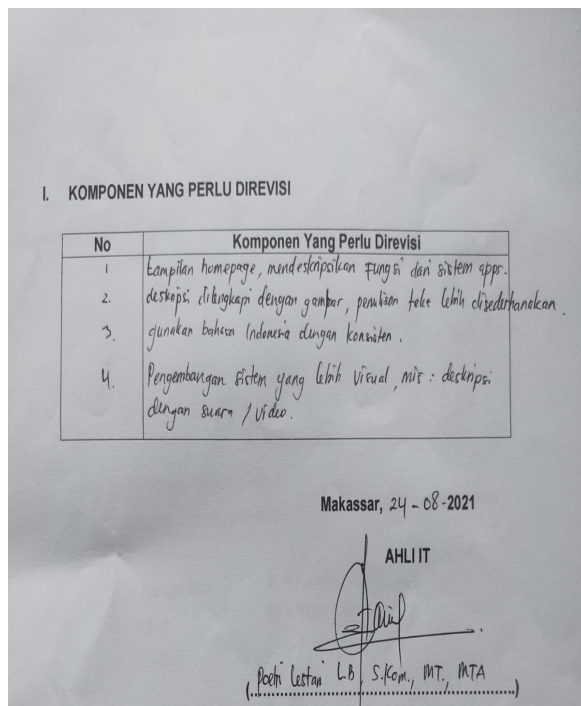 I. KOMPONEN YANG PERLU DIREVISI
No Komponen Yang Perlu Direvisi
1 tampilan homepage, mendeskripsikan fungsi dari sistem apps.
2. deskripsi dilengkapi dengan gambar, penulisan teks lebih disederhanakan.
3. gunakan bahasa Indonesia dengan konsisten.
4. Pengembangan sistem yang lebih visual, mis : deskripsi
dengan suara / video.
Makassar, 24-08-2021
AHLI IT
(Poetri Lestari L.B, S.Kom., MT., MTA)